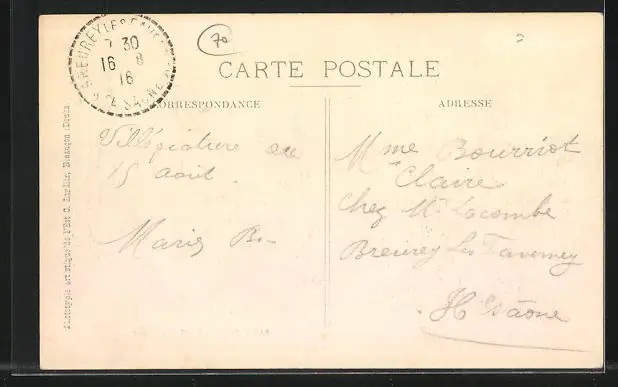 70
7 30
16 8
16
CARTE POSTALE
CORRESPONDANCE
ADRESSE
Villégiature du
15 Août.
Marie B.-
Mme Bourriot
Claire
Chez Mr Lacombe
Breurey les Faverney
Hte Saône
Phototypie artistique de l'Est C. Lardier, Besançon (Doubs